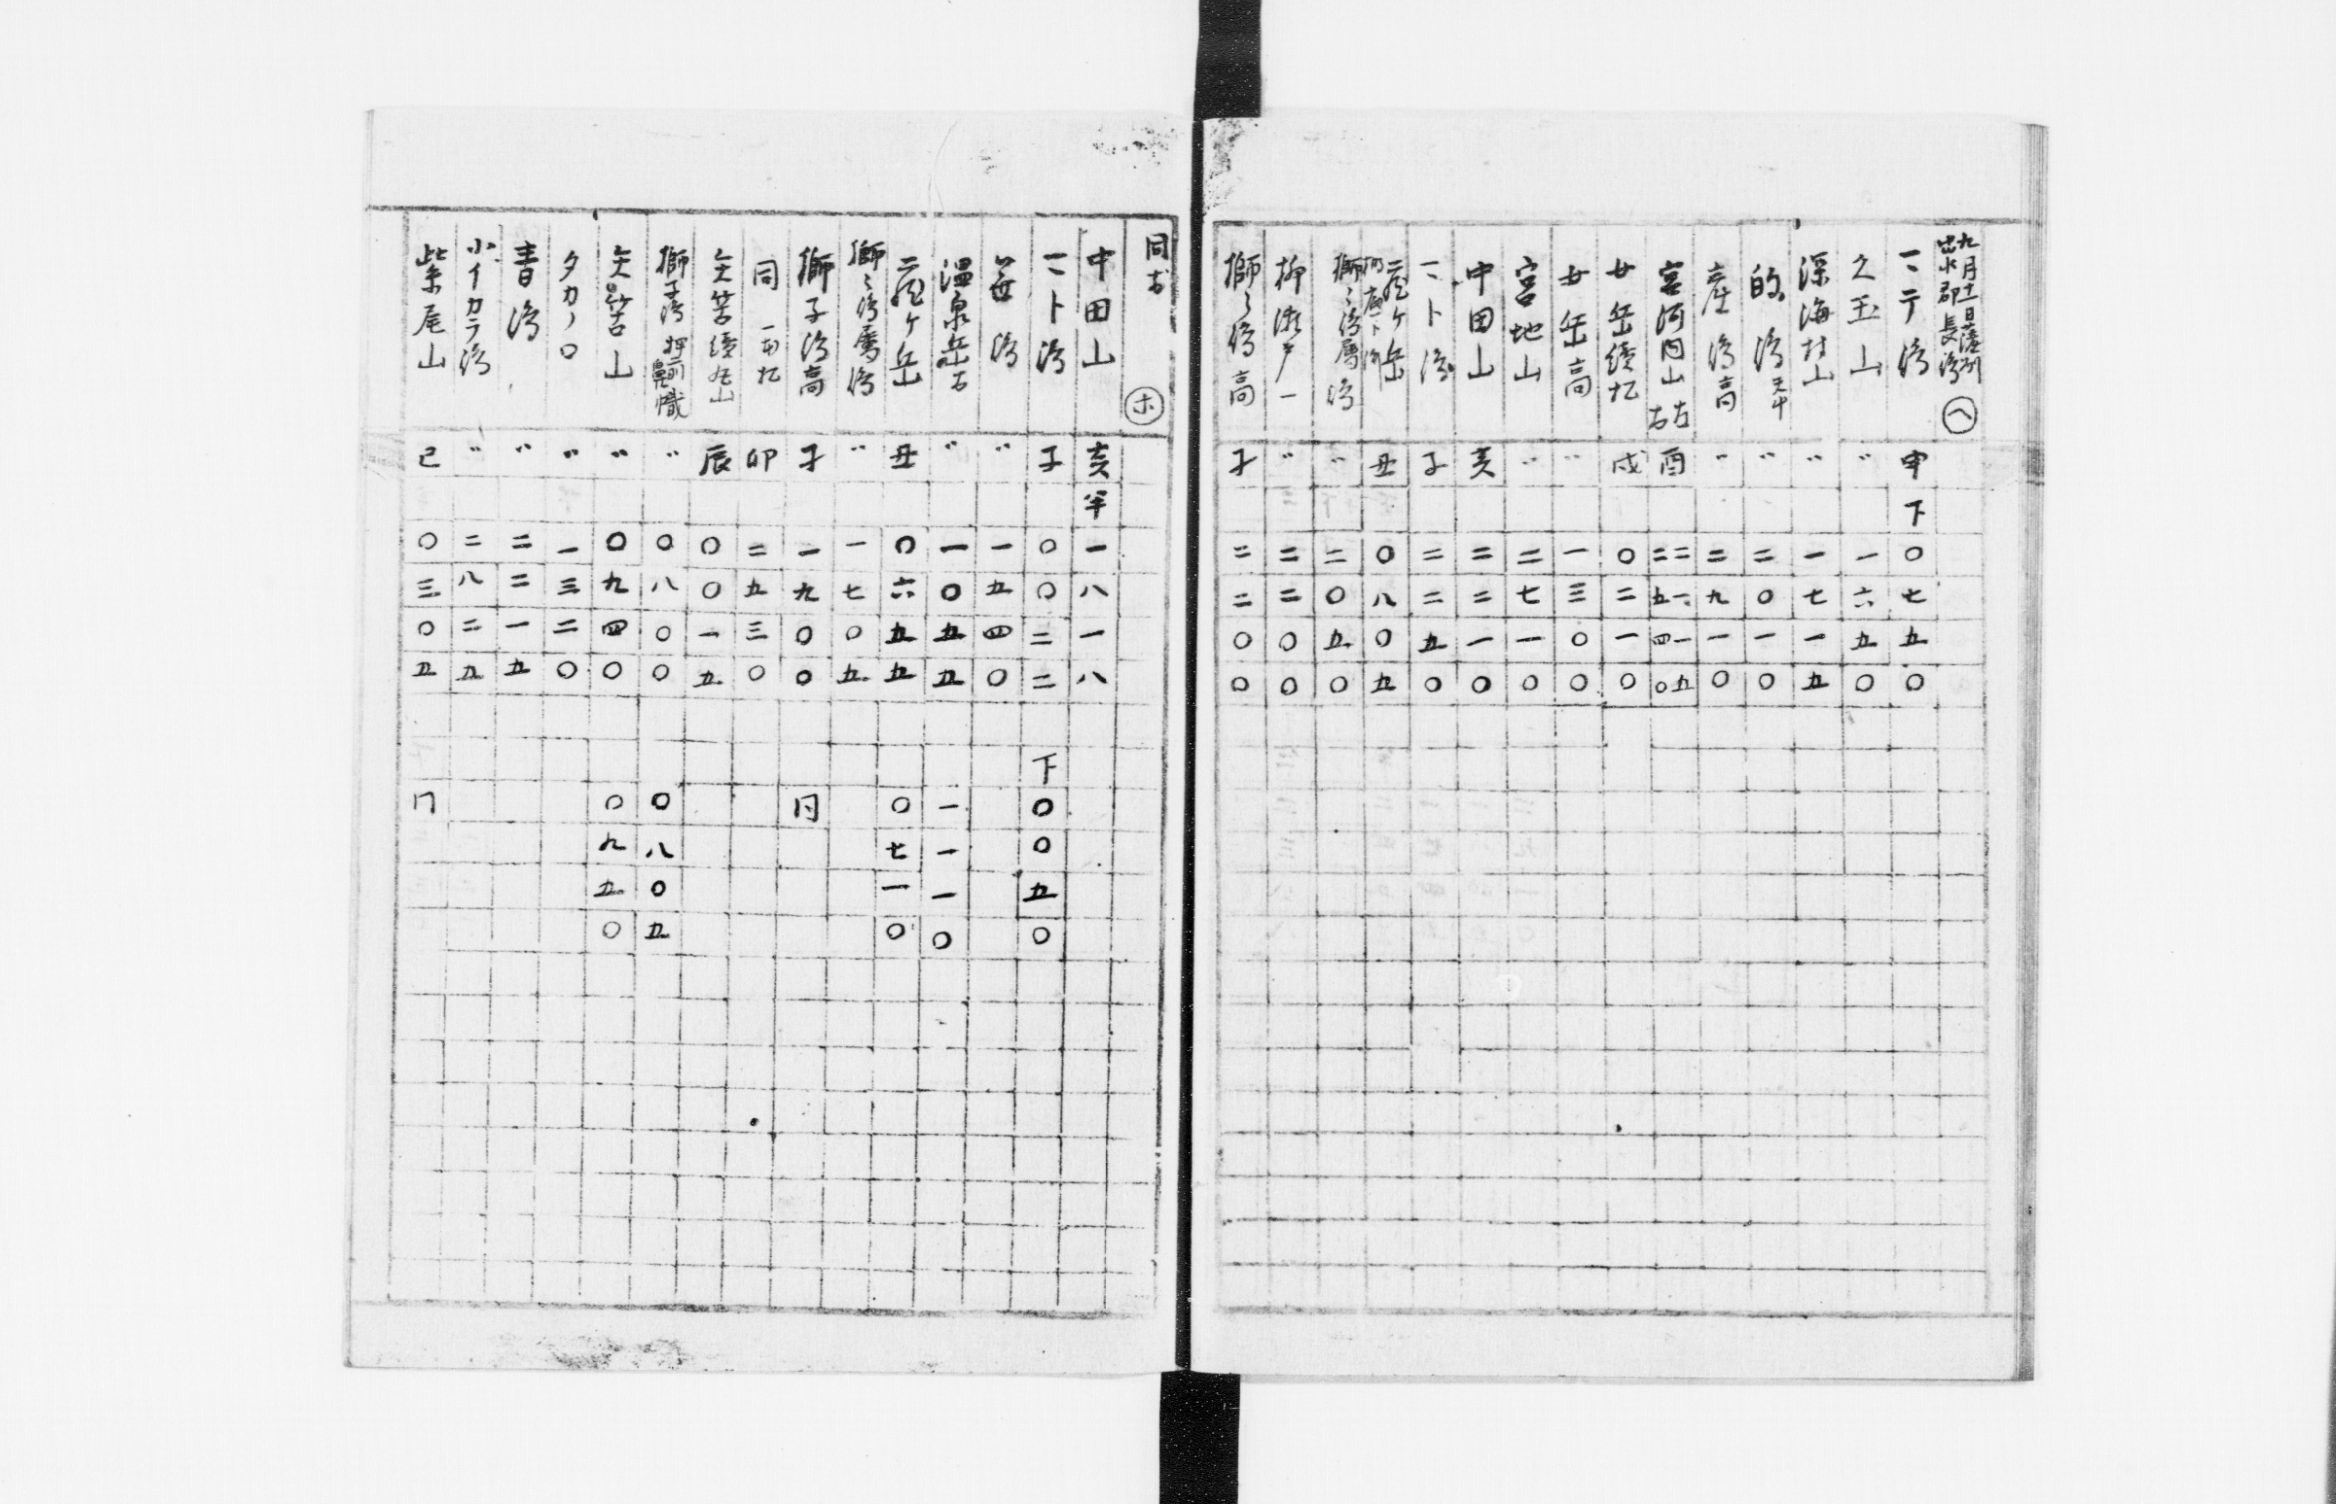 九月十一日薩州
出水郡長島 ㊀ヘ
一ニテ島 申下〇七五〇
久玉山 〃一六五〇
深海村山 〃一七一五
的島 〃二〇一〇
産島高 〃二九一〇
宮河内山 右左 酉 二一一五 二五四〇
女岳續九 戌〇二一〇
女岳高 〃一三〇〇
宮地山 〃二七一〇
中田山 亥二二一〇
一ニト島 子二二五〇
龍ケ岳 丑〇八〇五
獅々島属島 〃二〇五〇
柳瀬戸一 〃二二〇〇
獅々島高 子二二〇〇
同所 ホ
中田山 亥半一八一八
一ニト島 子〇〇二二 下〇〇五〇
〃一五四〇
温泉岳右 〃一〇五五 一一一〇
龍ケ岳 丑〇六五五 〇七一〇
獅々島属島 〃一七〇五
獅子島高 子一九〇〇 同
同一本九 卯二五三〇
矢筈續丸山 辰〇〇一五
獅子島 〃〇八〇〇 〇八〇五
矢筈山 〃〇九四〇 〇九五〇
タカノ口 〃一三二〇
青島 〃二二一五
小イカラ島 〃二八二五
柴尾山 巳〇三〇五 同